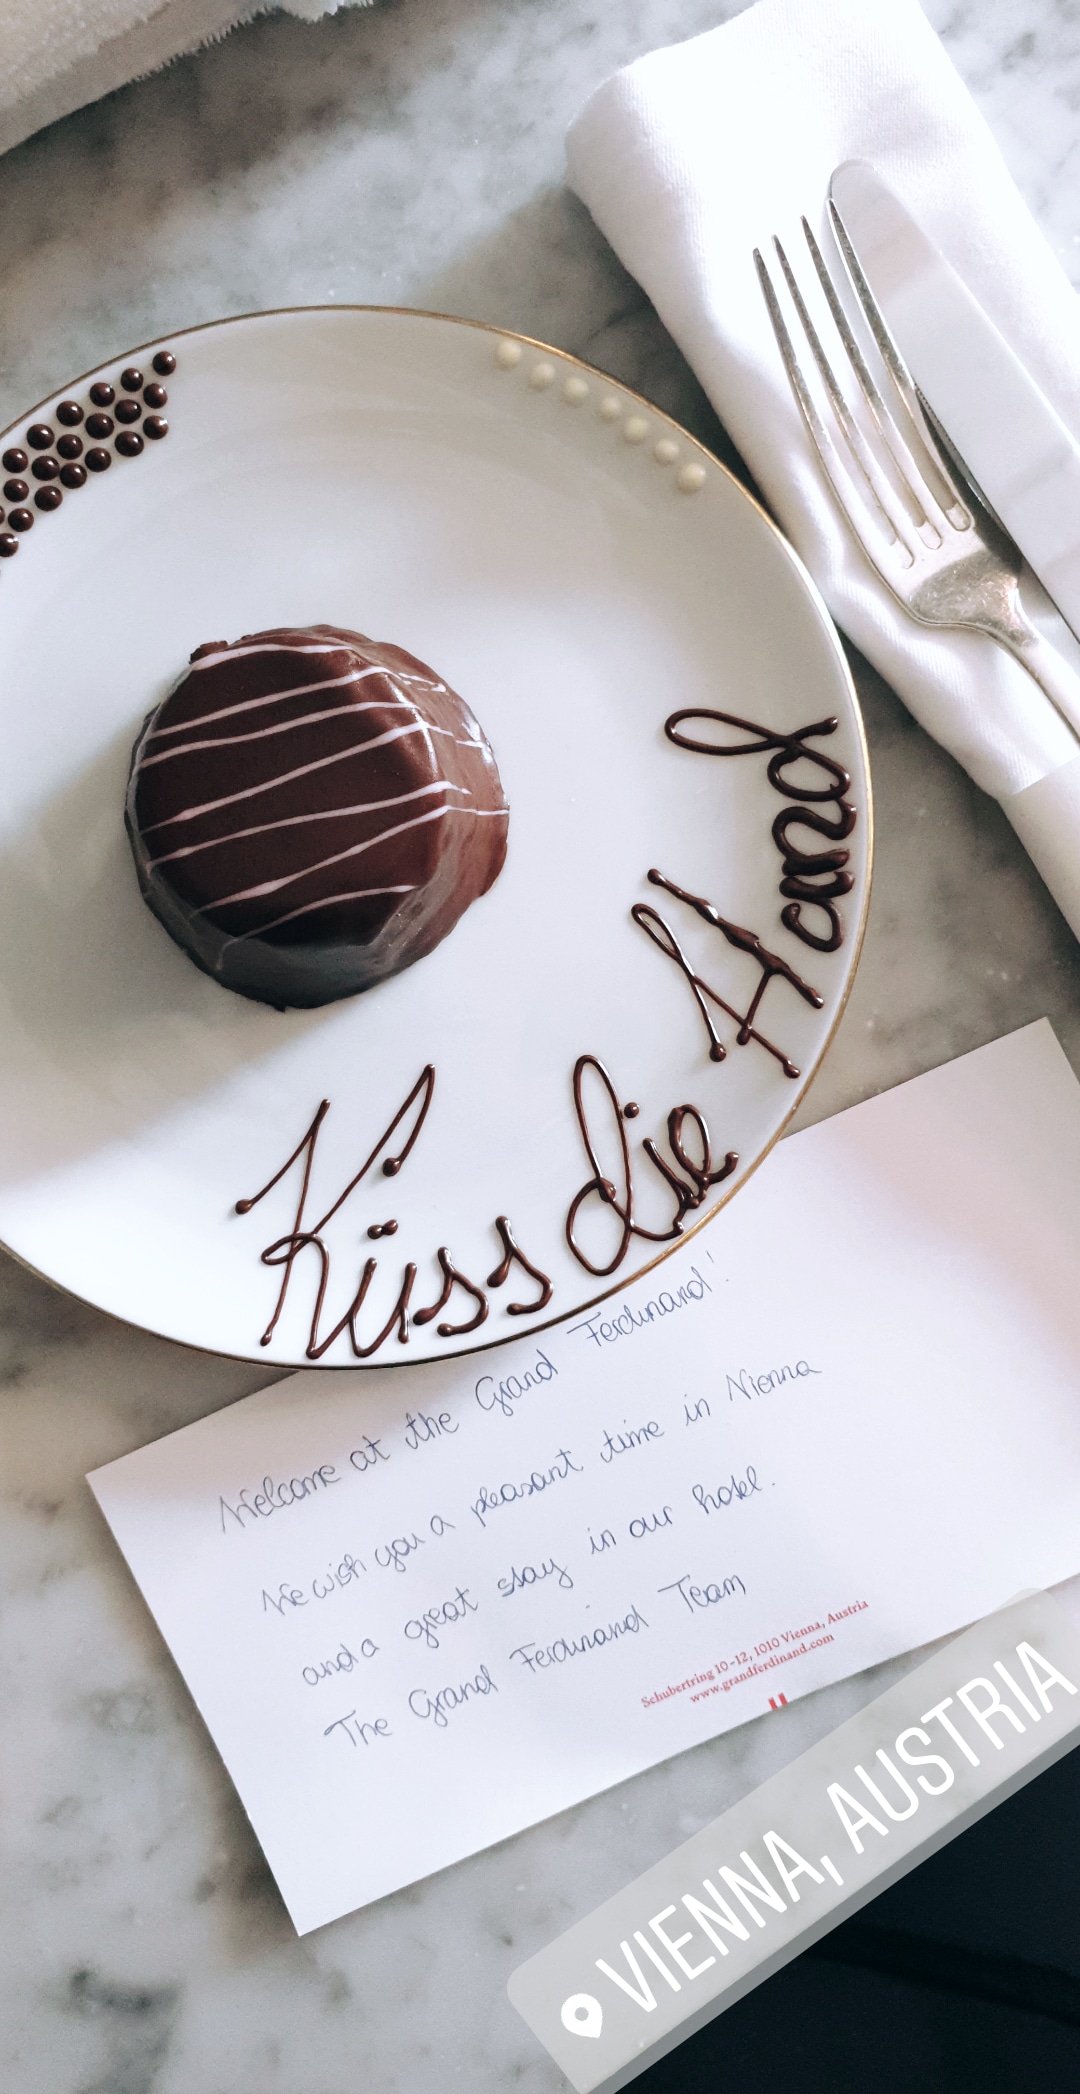 Küss die Hand
Welcome at the Grand Ferdinand!
We wish you a pleasant time in Vienna
and a great stay in our hotel.
The Grand Ferdinand Team
Schubertring 10-12, 1010 Vienna, Austria
www.grandferdinand.com
VIENNA, AUSTRIA